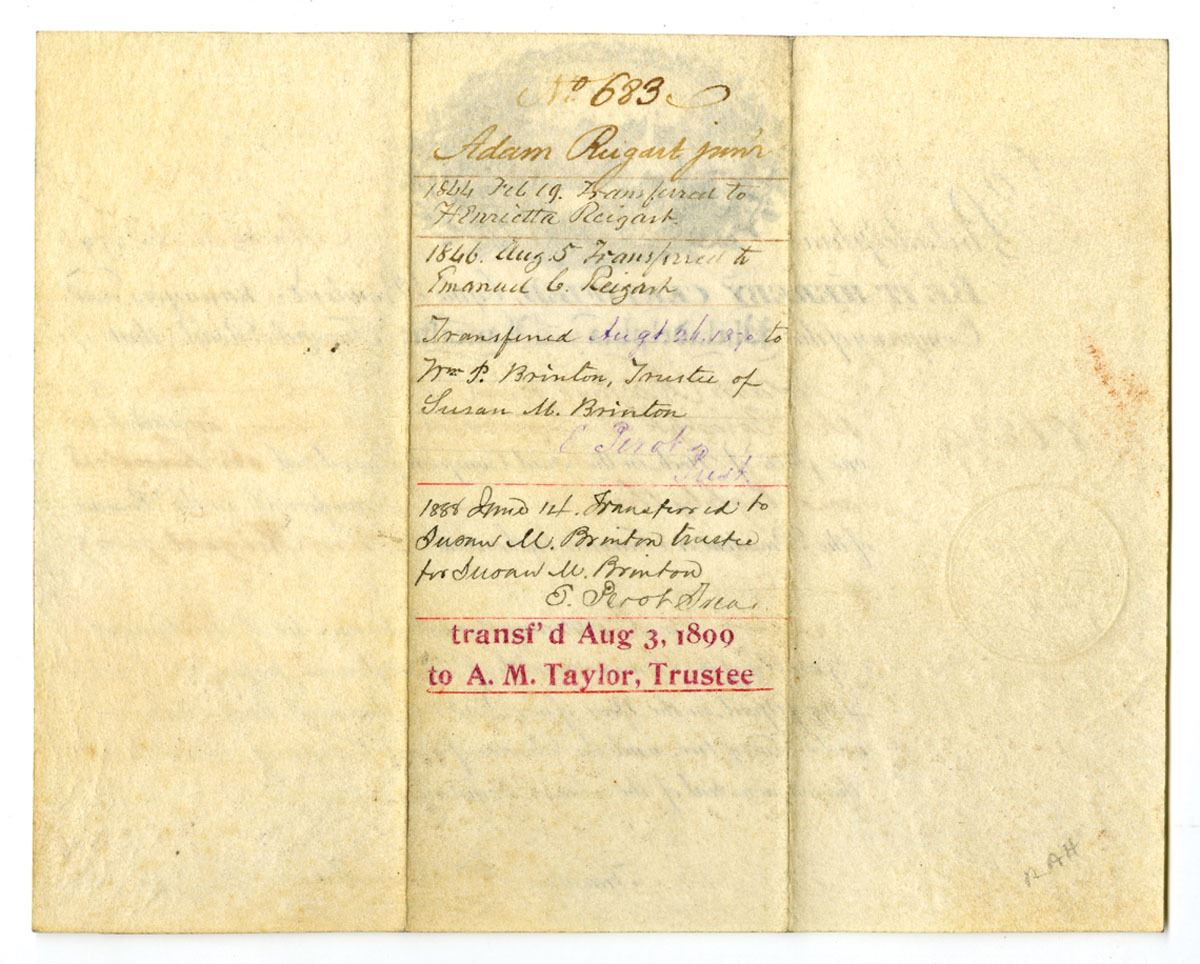 No 683
Adam Reigart jun'r
1844 Feb 19. Transferred to
Henrietta Reigart.
1846. Aug. 5 Transferred to
Emanuel C. Reigart
Transferred Augt 26. to
Wm P. Brinton, Trustee of
Susan M. Brinton
E Perot
1888 June 14. Transferred to
Susan M. Brinton trustee
for Susan M. Brinton
E. Perot Treas.
transf'd Aug 3, 1899
to A. M. Taylor, Trustee
RAH